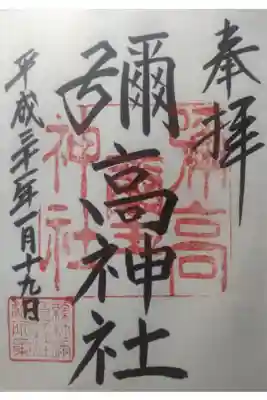 奉拝
彌高神社
平成三十一年一月十九日
高
神社